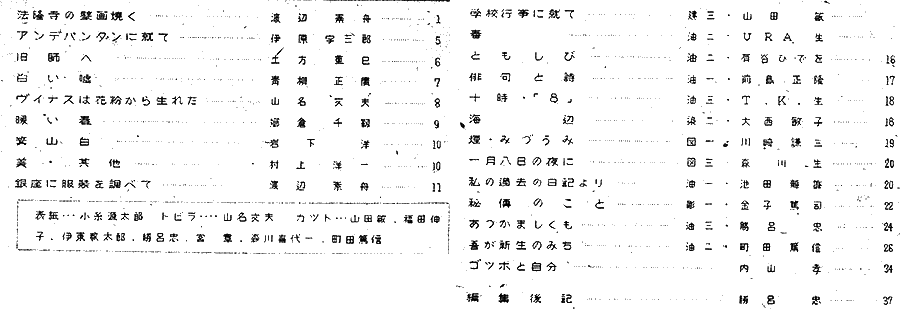 法隆寺の壁画焼く 渡辺素舟 1
アンデパンタンに就て 伊原宇三郎 5
旧師へ 土方重巳 6
白い嘘 青柳正廣 7
ヴイナスは花粉から生れた 山名文夫 8
暖い春 千 9
山白 岩下洋 10
美・其他 村上洋一 10
銀座に服装を調べて 渡辺素舟 11
表紙…小糸源太郎 トビラ…山名文夫 カツト…山田敏．福田伸
子．伊東敦太郎．勝呂忠．宮章．森川喜代一．町田篤信
学校行事に就て 建三・山田敏
春 油二・URA生
ともしび 油二・ひでを 16
俳句と詩 油一・前島正隆 17
十時・「8」 油三・T.K.生 18
海辺 染二・大西敏子 18
煙・みづうみ 図一・川崎謙三 19
一月八日の夜に 図三 森川生 20
私の過去の日記より 油一・池田 20
秘傳のこと 彫一・金子篤司 22
あつかましくも 油三・勝呂忠 24
吾が新生のみち 油二・町田篤信 26
ゴツホと自分 内山孝 34
編集後記 勝呂忠 37